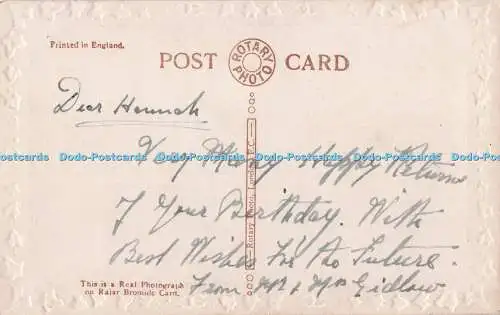 Printed in England.
POST CARD
ROTARY PHOTO
Dear Hannah.
Very Many Happy Returns
Dodo-Postcards Dodo-Postcards Dodo-Postcards Dodo-Postcards Dodo-Postcards
of Your Birthday. With
Best Wishes For the Future.
From Mr & Mrs Gidlow
Rotary Photo, London, E.C.
This is a Real Photograph
on Rajar Bromide Card.